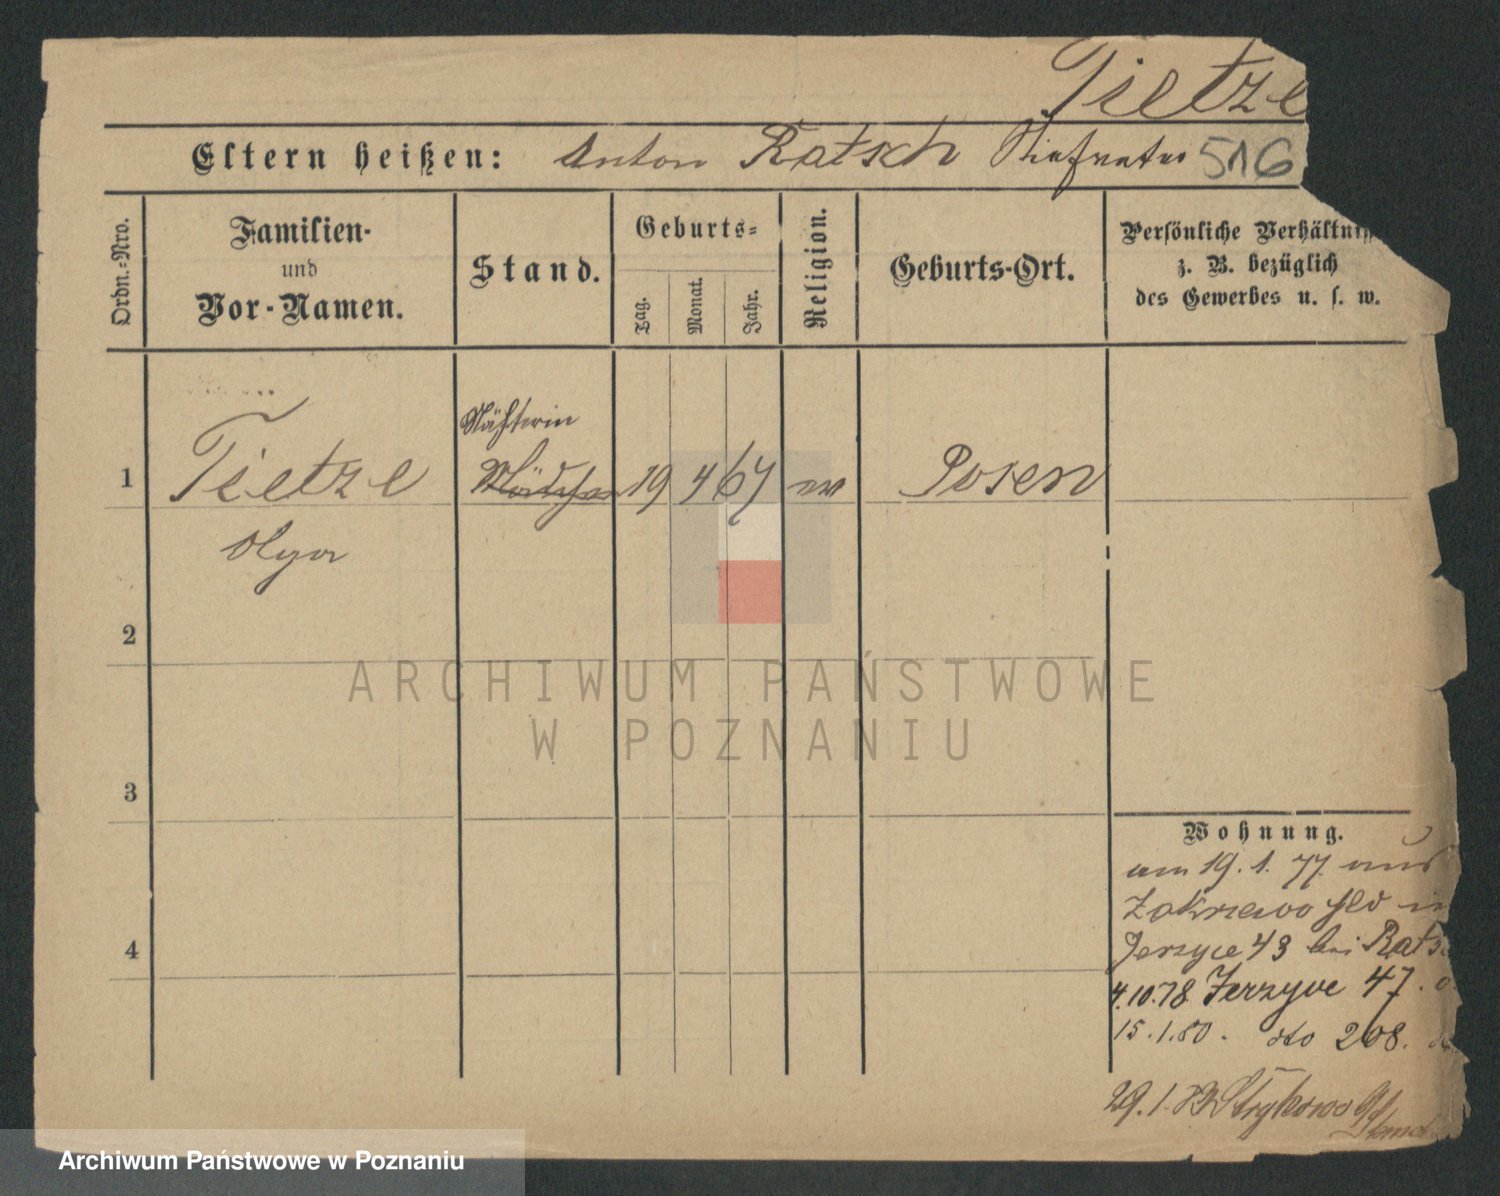 Tietze
Eltern heißen: Anton Ratsch Stiefvater 516
Ordn.-Nro.
Familien-
und
Vor-Namen.
Stand.
Geburts-
Tag.
Monat.
Jahr.
Religion.
Geburts-Ort.
Persönliche Verhältniss
z. B. bezüglich
des Gewerbes u. s. w.
Nähterin
1 Tietze Mädchen 19 4 67 ev Posen
Olga
2
3
4
Wohnung.
am 19. 1. 77. aus
Zakrzewo
Jerzyce 43 bei Ratsch
4.10.78 Jerzyce 47.
15.1.80. dto 208.
29.1. Strykowo
ARCHIWUM PAŃSTWOWE
W POZNANIU
Archiwum Państwowe w Poznaniu